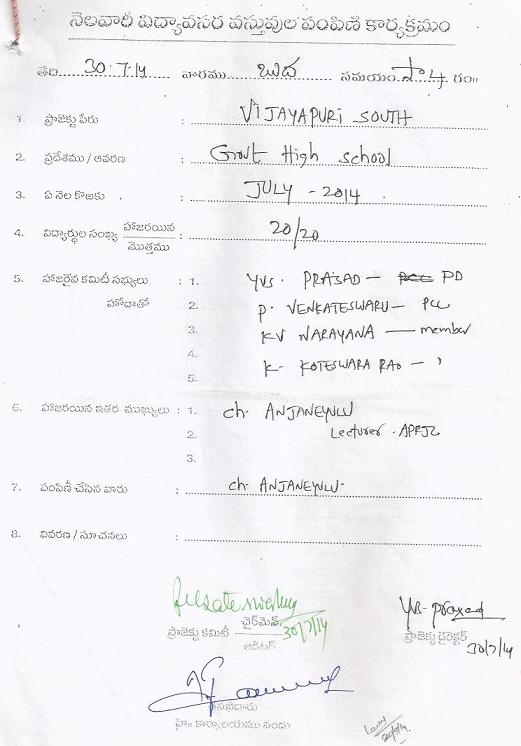 నెలవారీ విద్యావసర వస్తువుల పంపిణి కార్యక్రమం
తేది.....30.7.14..... వారము.....బుధ..... సమయం.సా 4.గం॥
1. ప్రాజెక్టు పేరు : VIJAYAPURI SOUTH
2. ప్రదేశము / ఆవరణ : Govt High school
3. ఏ నెల కొఱకు : JULY - 2014
4. విద్యార్థుల సంఖ్య హాజరయిన/మొత్తము : 20/20
5. హాజరైన కమిటీ సభ్యులు : 1. YVS. PRASAD - PD
హోదాతో 2. P. VENKATESWARU - PCC
3. KV NARAYANA - member
4. K. KOTESWARA RAO - "
5.
6. హాజరయిన ఇతర ముఖ్యులు : 1. ch. ANJANEYULU
2. Lecturer. APRJC
3.
7. పంపిణీ చేసిన వారు : ch. ANJANEYULU.
8. వివరణ / సూచనలు :
ప్రాజెక్టు కమిటీ చైర్‌మెన్/ఆడిటర్ 30/7/14
YVS. Prasad
ప్రాజెక్టు డైరెక్టర్
30/7/14
హై॥ కార్యాలయము నందు